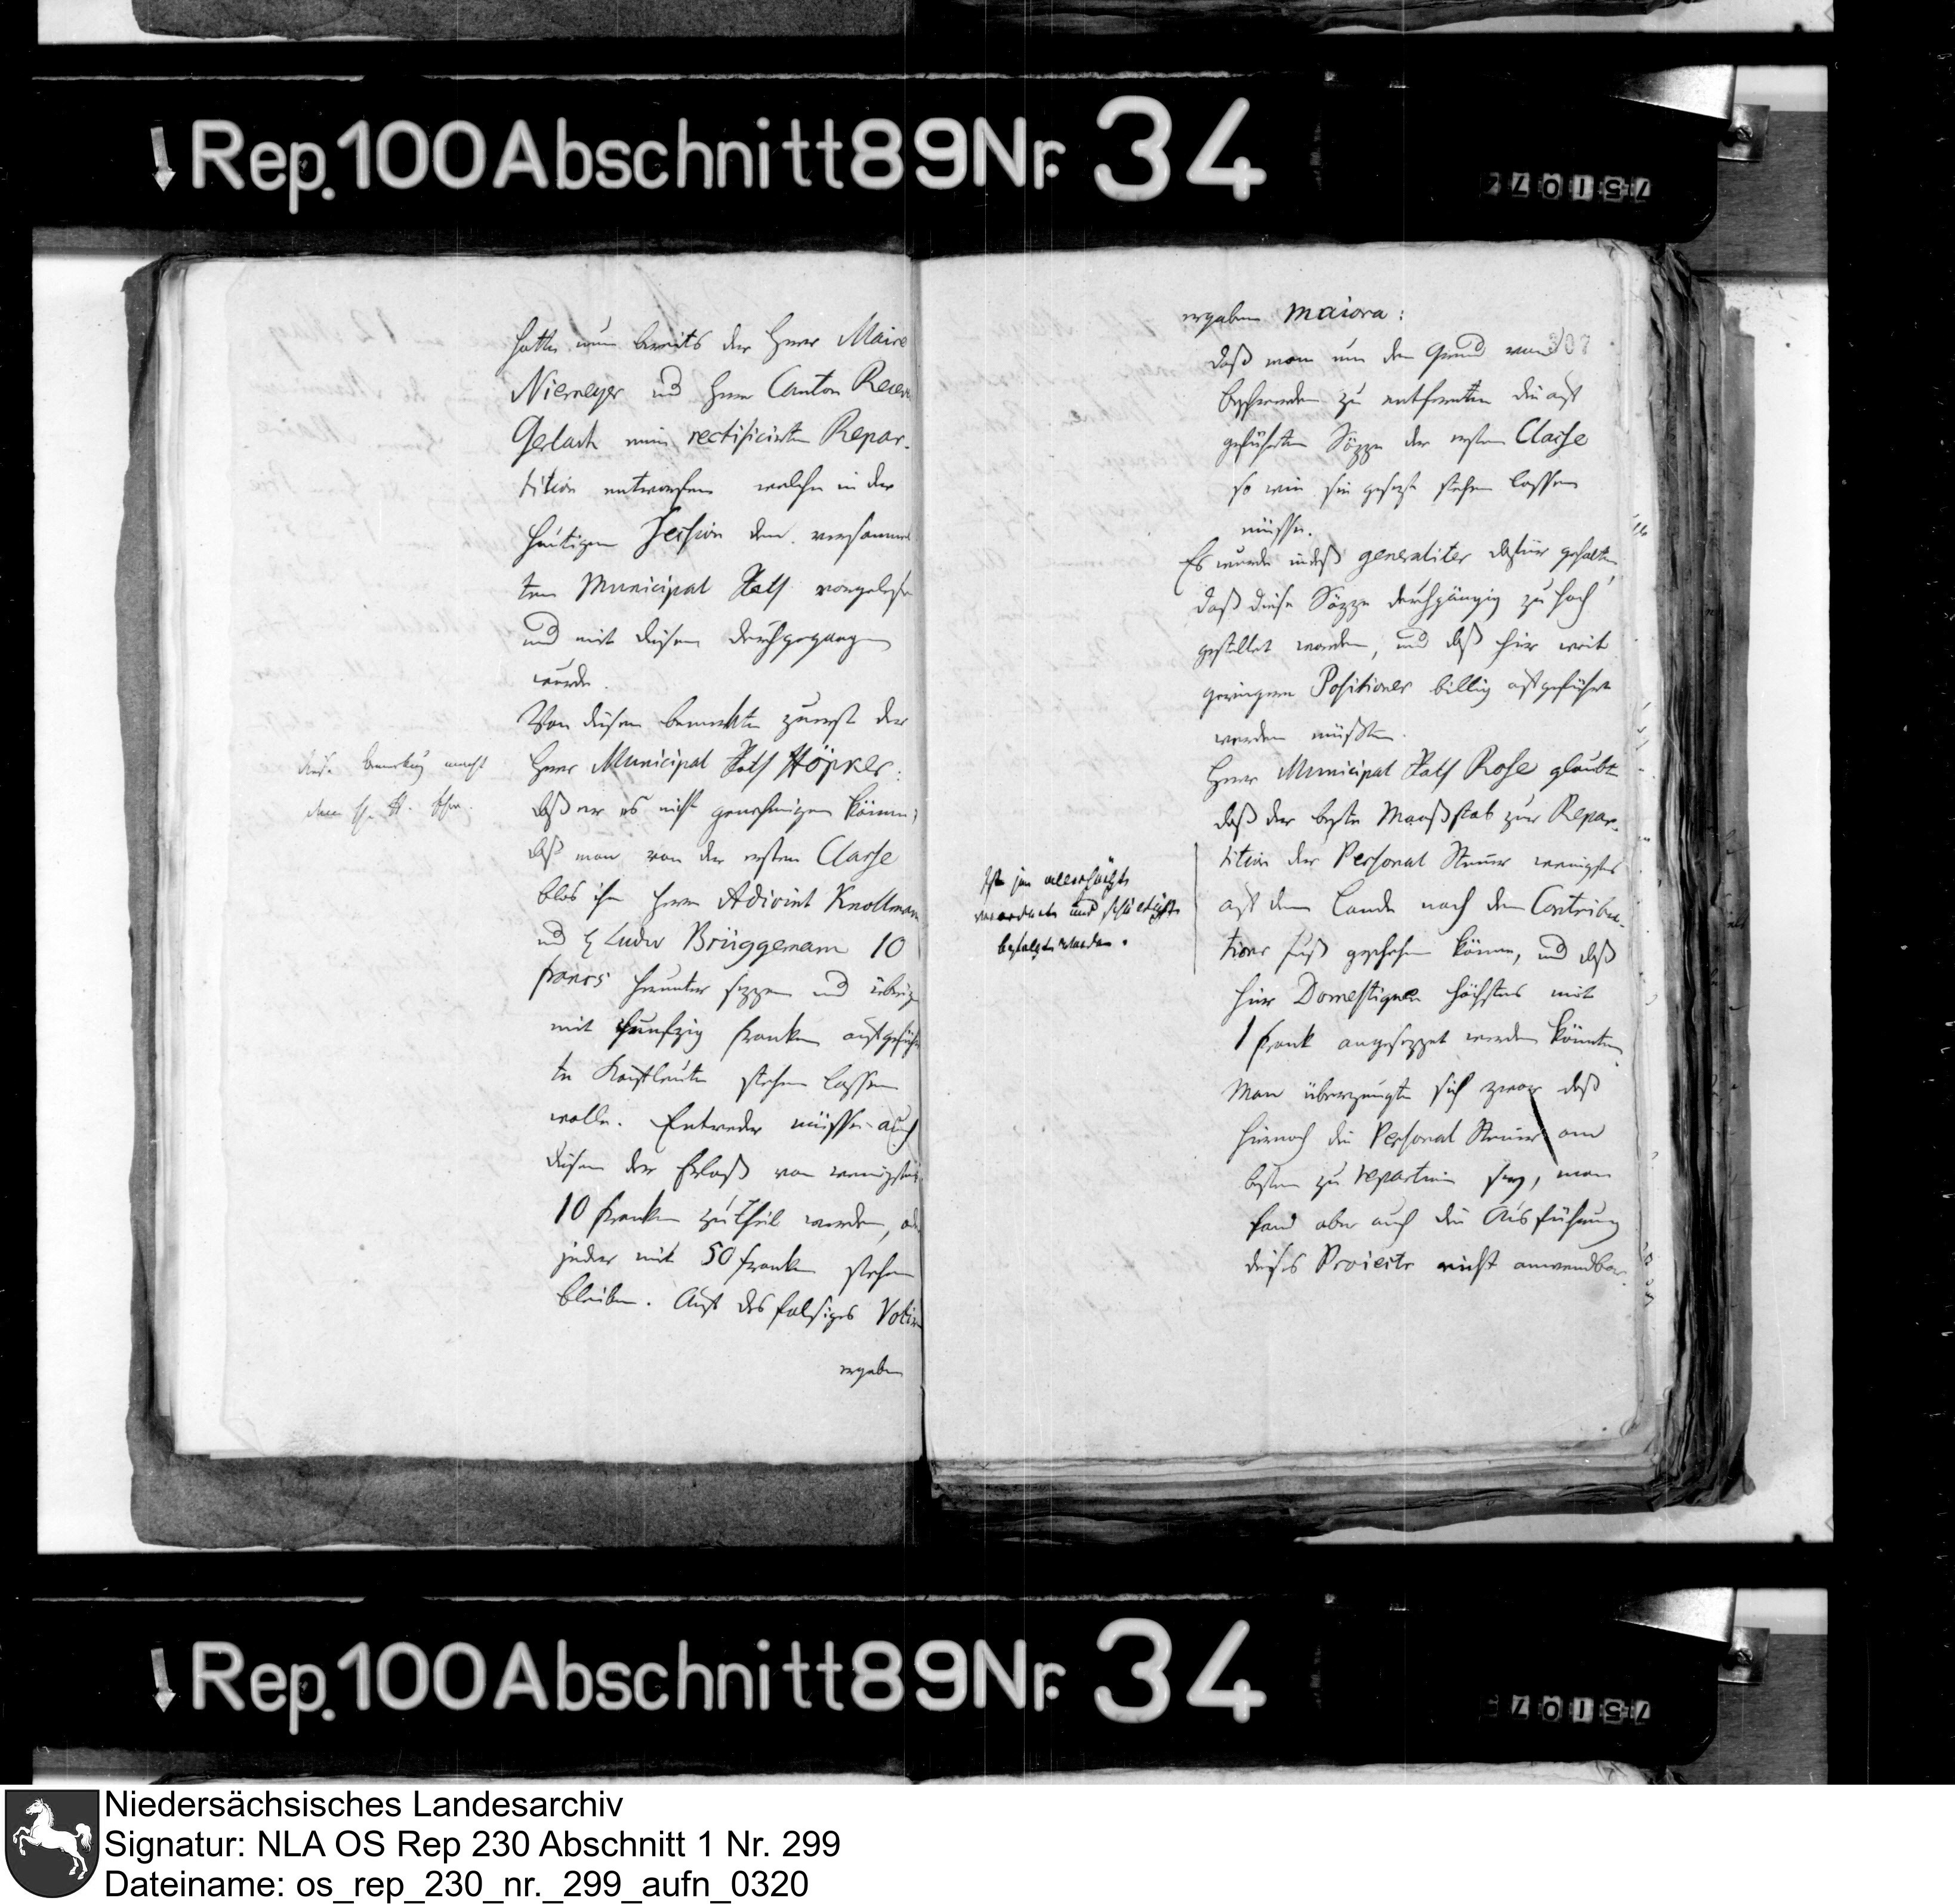 Rep. 100 Abschnitt 89 Nr. 34
hatte nun bereits der Herr Maire
Niemeyer und Herr Canton Recev.
Gerlach eine rectificirte Repar-
tition entworfen welche in der
heutigen Session dem versammel
ten Municipal Rath vorgelesen
und mit diesem durchgegangen
wurde.
Von diesem bemerkte zuerst der
Herr Municipal Rath Höpker:
daß er es nicht genehmigen könne,
daß man von der ersten Classe
blos ihn Herrn Adioint Knollman
und H Ludw Brüggemann 10
francs herunter sezzen und übrige
mit funfzig Franken aufgeführ
te Kaufleute stehen lassen
wolle. Entweder müsse auch
diesen der Erlaß von wenigstens
10 Franken zu Theil werden, oder
jeder mit 50 Franken stehen
bleiben. Auf das falsiges Votiren
ergaben
diese Bemerkung macht
ergaben maiora:
307
daß man um den Grund von
Beschwerden zu entfernen die auf
geführten Säzze der ersten Classe
so wie sie gesezt stehen lassen
müsse.
Es wurde indeß generaliter dafür gehalten,
daß diese Säzze durchgängig zu hoch
gestellet worden, und daß hier weit
geringere Positiones billig aufgeführt
werden müßten.
Herr Municipal Rath Rose glaubte
daß der beste Maaßstab zur Repar-
tition der Personal Steuer wenigstens
auf dem Lande nach dem Contribu-
tions Fuß geschehen könne, und daß
hier Domestiquen höchstens mit
1 Frank angesezzet werden könnten
Man überzeugte sich zwar daß
hiernach die Personal Steuer am
besten zu repartiren sey, man
fand aber auch die Ausführung
dieses Proiects nicht anwendbar.
Ist ja allerhöchst
verordnet und
befolgt worden.
Rep. 100 Abschnitt 89 Nr. 34
Niedersächsisches Landesarchiv
Signatur: NLA OS Rep 230 Abschnitt 1 Nr. 299
Dateiname: os_rep_230_nr._299_aufn_0320